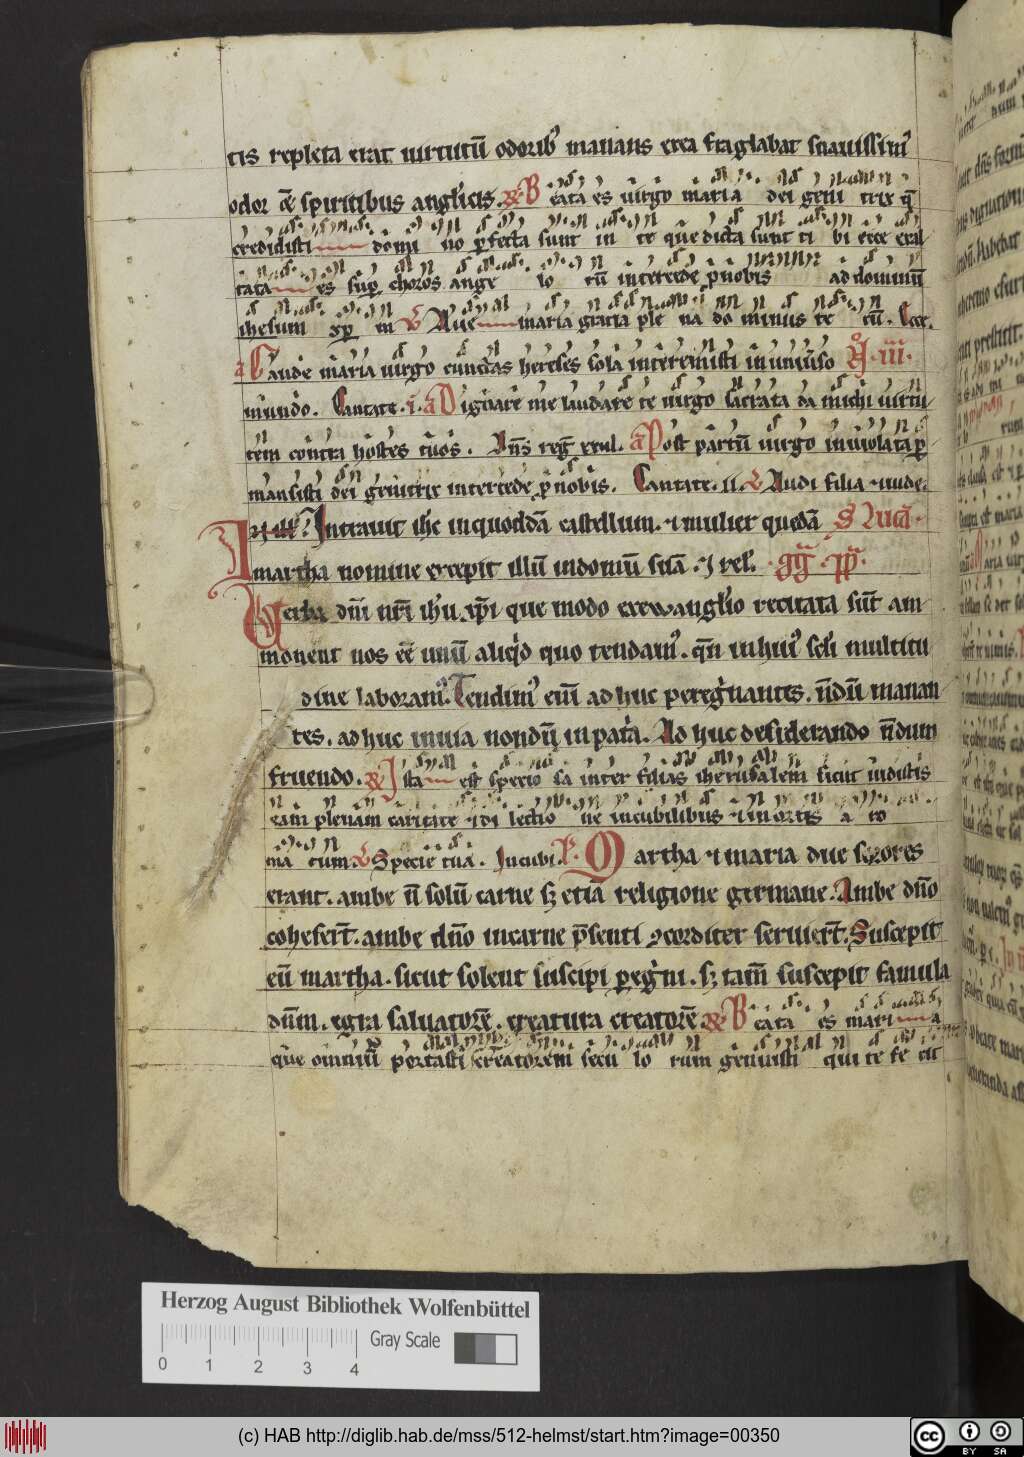 tis repleta erat uirtutū odorib᾽ manans erea fraglabat suauissim᾽
odor ē spiritibus angl'icis. R Beata es uirgo maria dei geni trix q̄
credidisti domi no pfecta sunt in te que dicta sunt ti bi ecce exal
tata es sup choros ange lo rū intercede p nobis ad dominū
ihesum xp̄ m V Aue maria gratia ple na do minus te cū. Ecce.
a Gaude maria uirgo cunctas hereses sola interemisti in uniuso
mundo. Cantate. i. a Dignare me laudare te uirgo sacrata da michi uirtu
tem contra hostes tuos. Dn̄s reg̅ exul. a Post partū uirgo inuiolata p
mansisti dei genitrix intercede p nobis. Cantate. ii. V Audi filia ⁊ uide.
In ill'. Intrauit ihc in quoddā castellum. ⁊ mulier quedā S Lucā.
martha nomine excepit illū in domū suā. ⁊ rel'.
Verba dn̄i nr̄i ih'u xp̄i que modo ex ewangl'io recitata sūt am
monent nos eē unū aliq'd quo tendam᾽. qn̄ in hui᾽ scl'i multitu
dine laboram᾽. Tendim᾽ eni ad huc peregrinantes. n̄dū manan
tes. ad huc in uia nondū in pat'a. Ad huc desiderando n̄dum
fruendo. R Ista est specio sa inter filias iherusalem sicut uidistis
eam plenam caritate ⁊ di lectio ne in cubilibus ⁊ in ortis a ro
ma tum. V Specie tua. In cubi. Martha ⁊ maria due sorores
erant. ambe n̄ solū carne sꝫ etiā religione germane. Ambe dn̄o
cohesert̄. ambe dn̄o in carne p̄senti ꝯcorditer seruiert̄. Suscepit
eū martha. sicut solent suscipi pegr'ni. sꝫ tam̄ suscepit famula
dn̄m. egra saluatorē. creatura creatorē R Beata es mari a
que omniū portasti creatorem secu lo rum genuisti qui te fe cit
Herzog August Bibliothek Wolfenbüttel
Gray Scale
0 1 2 3 4
(c) HAB http://diglib.hab.de/mss/512-helmst/start.htm?image=00350
cc BY SA